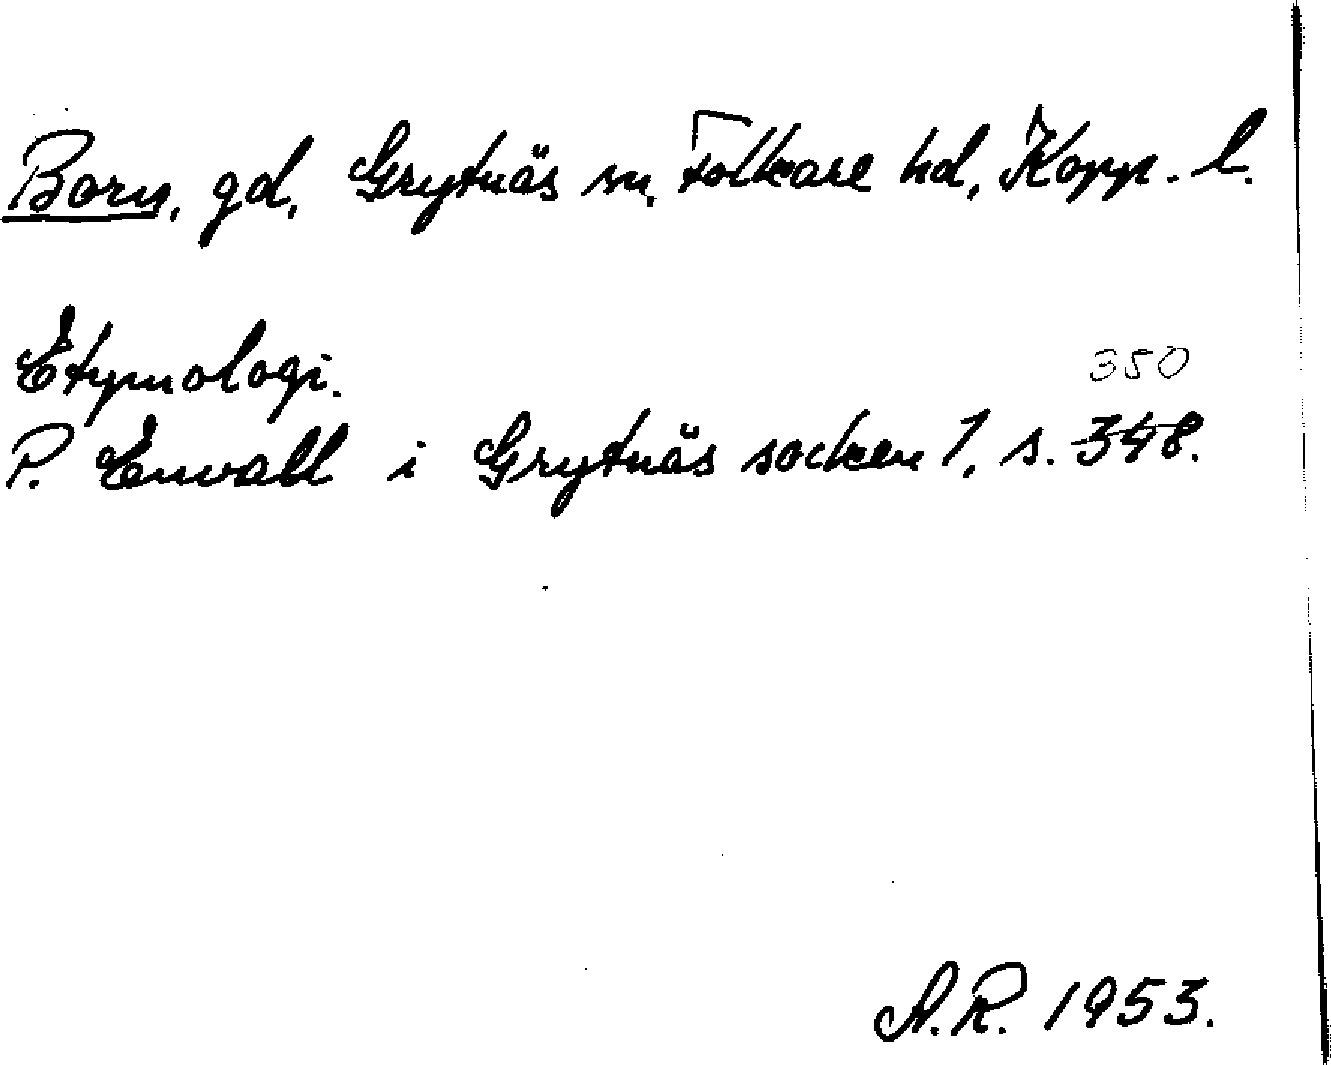 Born, gd, Grytnäs sn, Folkare hd, Kopp. l.
Etymologi.
350
P. Envall i Grytnäs socken 1, s. 348.
A.R. 1953.